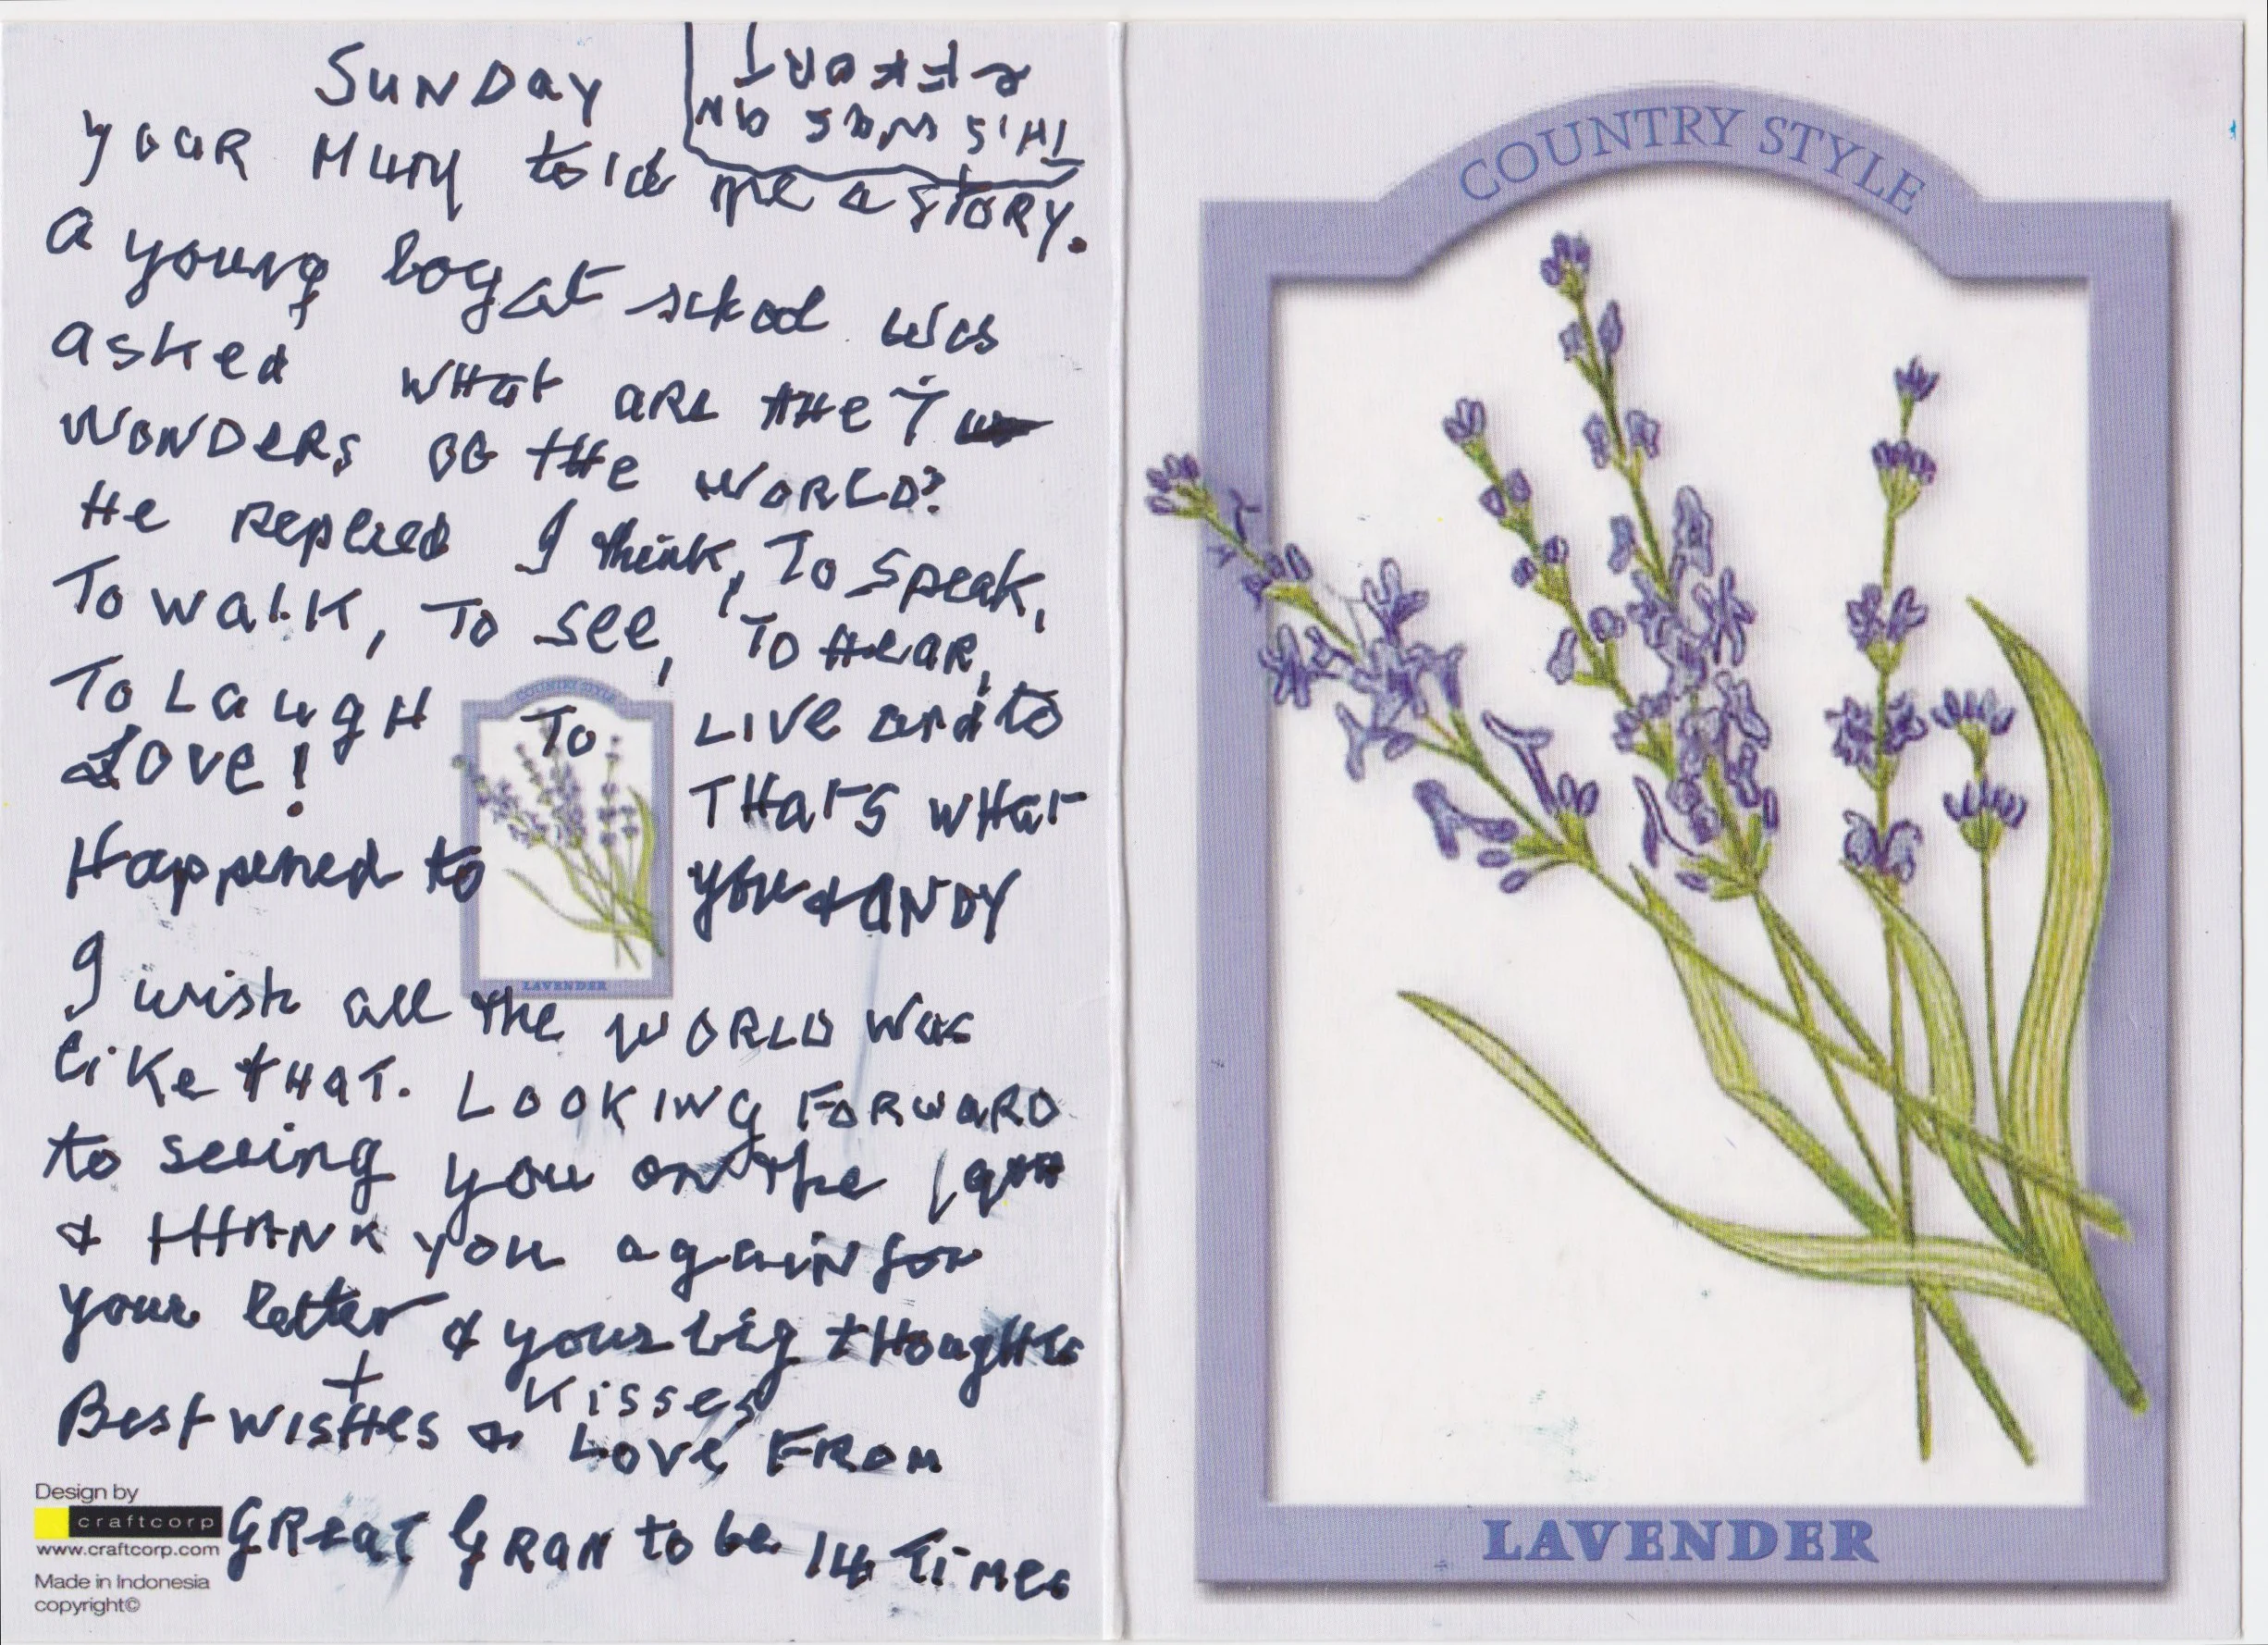 SUNDAY
THIS WAS AN
EFFORT
YOUR MUM told me a STORY.
a young boy at school was
asked WHat aRe tHe 7
WONDERS OF tHe WORLD?
He Replied I think, To Speak,
To walk, To see, To Hear,
To Laugh To LIVE and to
LOVE! THat'S wHat
Happened to you & ANDY
I wish all the WORLD was
like tHaT. LOOKING FORWARD
to seeing you on the
& tHANK you again for
your letter & your big tHoughts
+ Kisses
Best WISHes & LOVe FROM
GReaT GRAN to be 14 Times
Design by
craftcorp
www.craftcorp.com
Made in Indonesia
copyright©
COUNTRY STYLE
LAVENDER
COUNTRY STYLE
LAVENDER